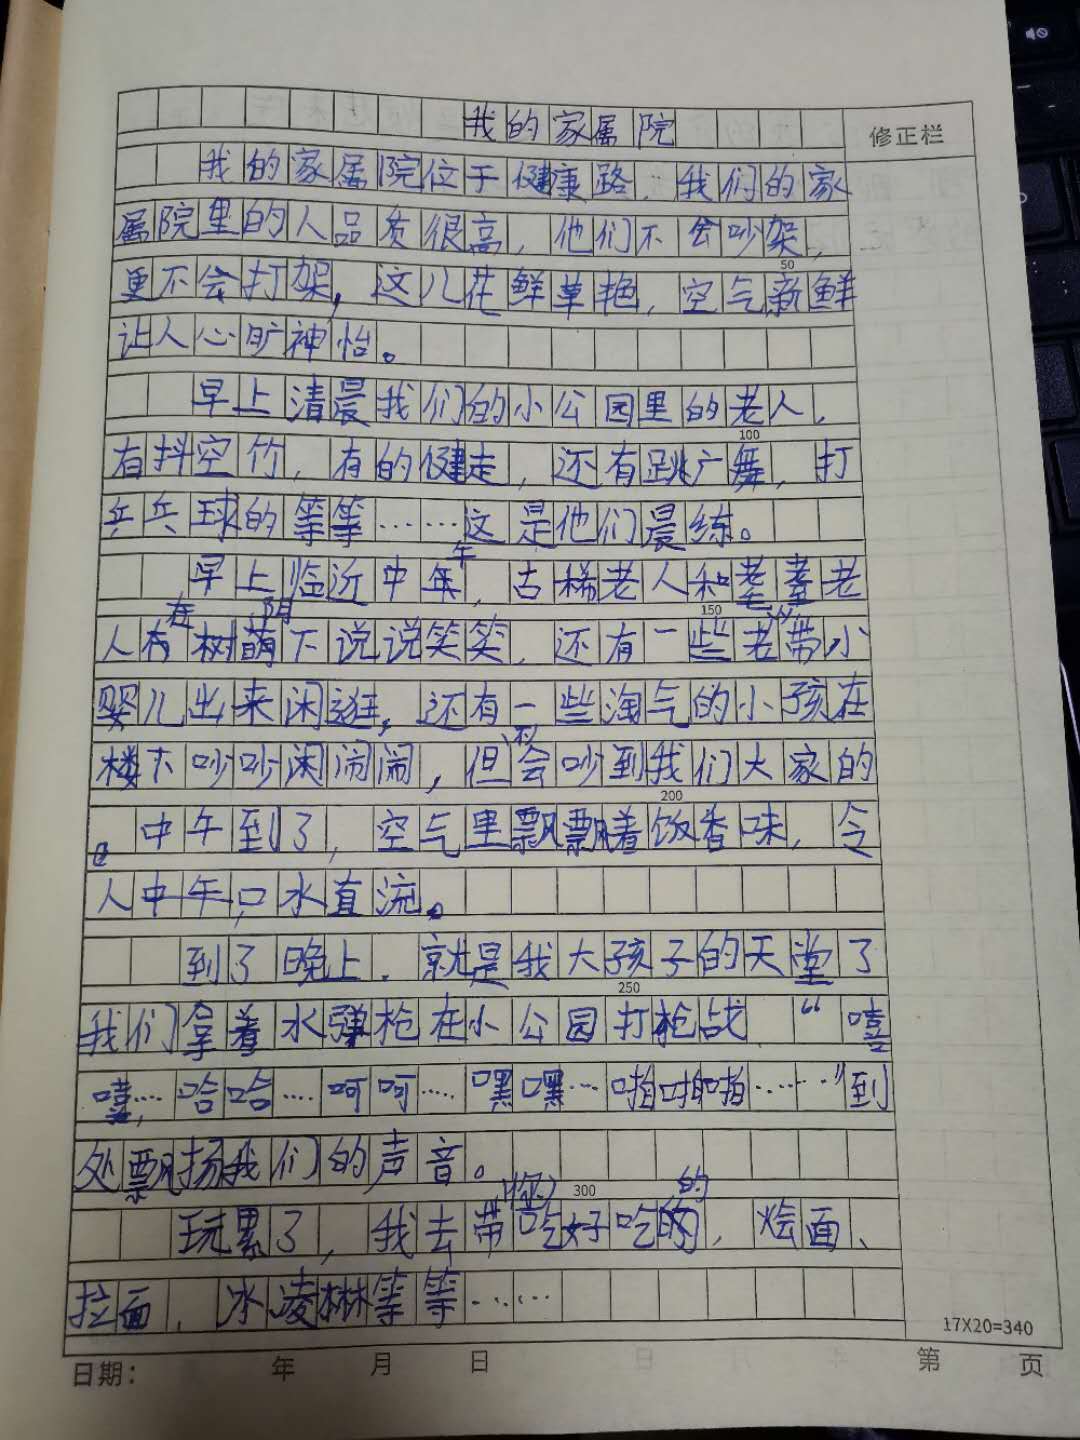 我的家属院
修正栏
我的家属院位于健康路,我们的家
属院里的人品质很高,他们不会吵架,
50
更不会打架,这儿花鲜草艳,空气新鲜
让人心旷神怡。
早上清晨我们的小公园里的老人,
100
有抖空竹,有的健走,还有跳广舞,打
乒乓球的等等……这是他们晨练。
午
早上临近中年,古稀老人和耄耋老
在 阴 150
人有树萌下说说笑笑,还有一些老带小
婴儿出来闲逛,还有一些淘气的小孩在
不
楼下吵吵闲闹闹,但会吵到我们大家的
200
。中午到了,空气里飘飘着饭香味,令
人中午口水直流。
到了晚上,就是我大孩子的天堂了
250
我们拿着水弹枪在小公园打枪战 “嘻
嘻…哈哈…呵呵…嘿嘿…啪啪啪……”到
处飘扬我们的声音。
(您) 300 的
玩累了,我去带吃好吃的,烩面、
拉面、冰凌淋等等……
17X20=340
日期: 年 月 日 第 页